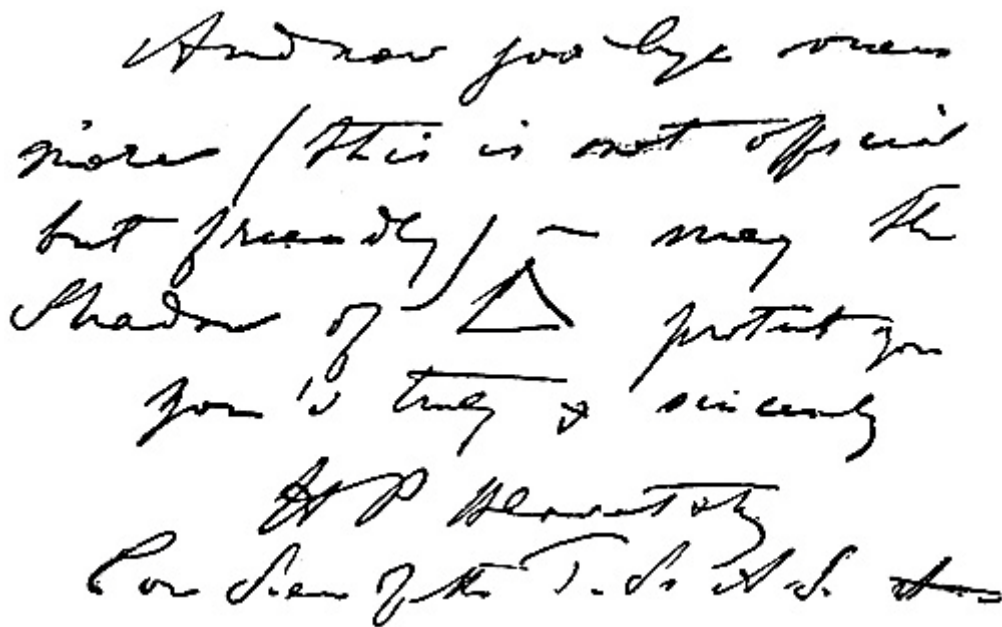 And now good bye once
more (this is not official
but friendly) — may the
Shadow of △ protect you
your's truly & sincerely
H P Blavatsky
Cor Secr of the T. S.